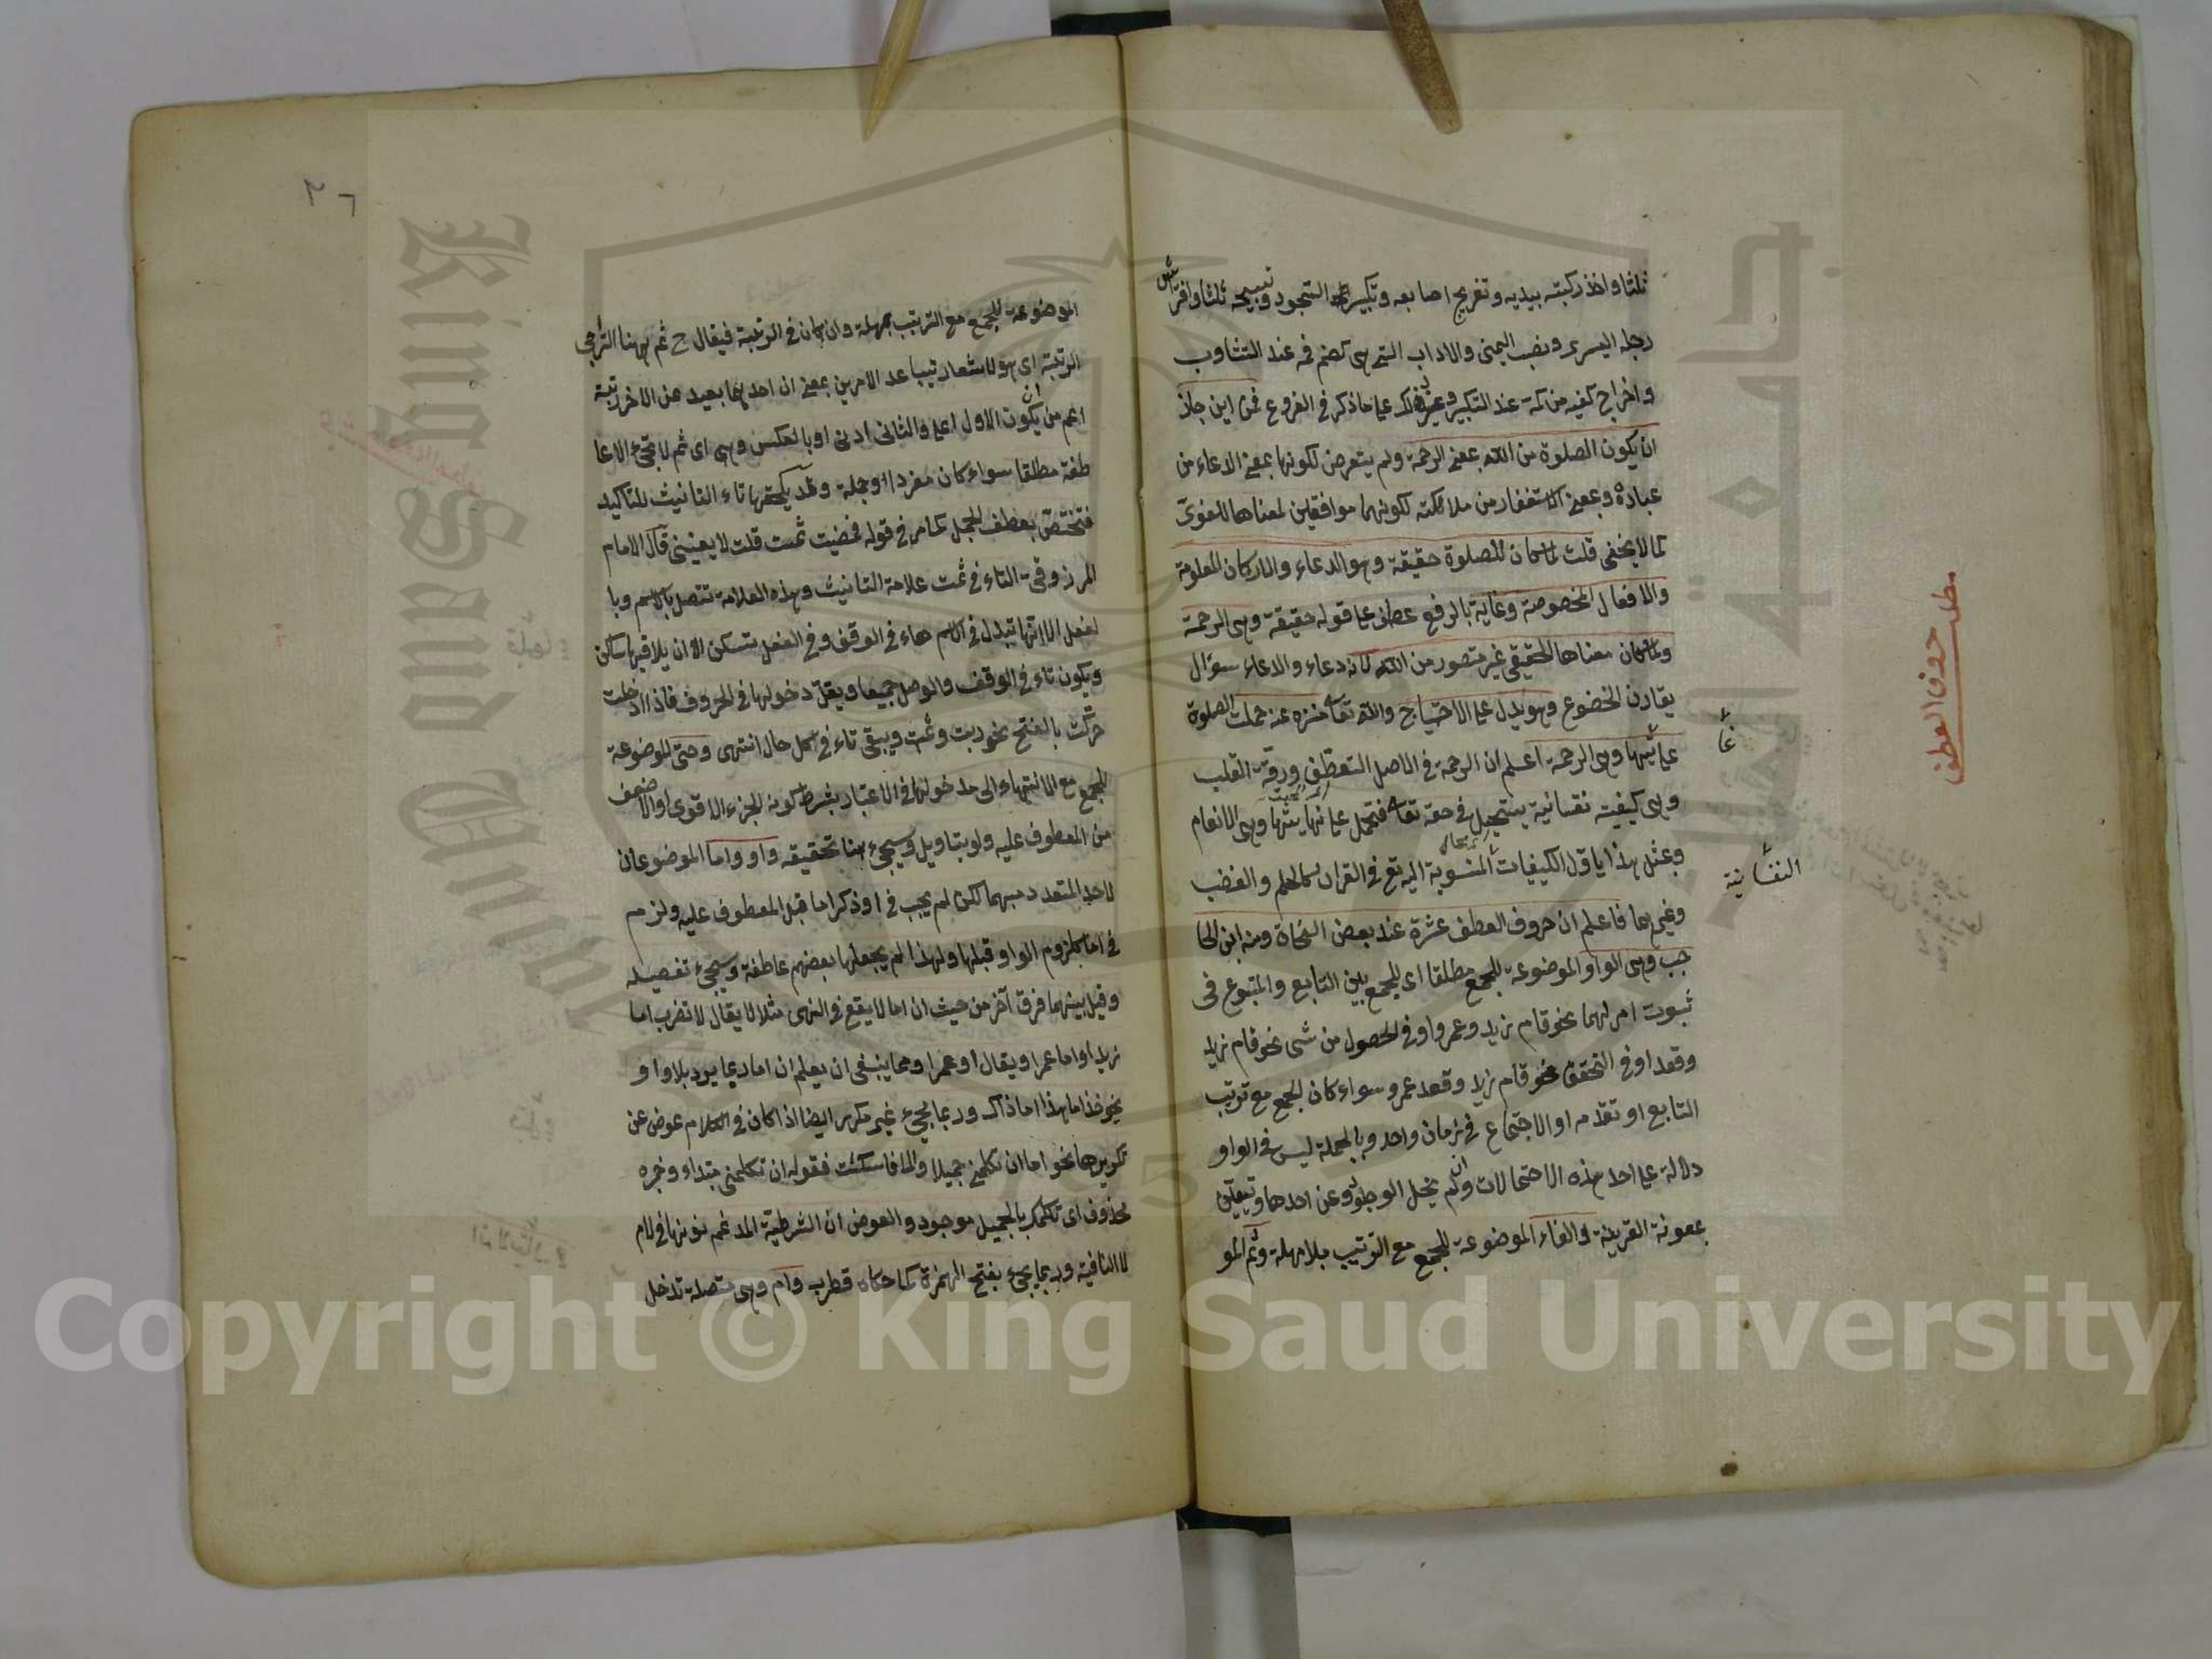 ثلثا واخذ ركبته بيديه وتفريج اصابعه وتكبيرة السجود وتسبيحه ثلثا وافتراش
رجله اليسرى ونصب اليمنى والاداب التى هى كضم فمه عند التثاوب
واخراج كفيه من كمه عند التكبير وغير ذلك على ما ذكر فى الفروع فمن اين جاز
ان يكون الصلوة من الله بمعنى الرحمة ولم يتعرض لكونها بمعنى الدعاء من
عباده وبمعنى الاستغفار من ملائكته لكونهما موافقين لمعناها اللغوى
كما لا يخفى قلت لما كان للصلوة حقيقة وهو الدعاء والاركان المعلومة
والافعال المخصوصة وغاية بالرفع عطف على قوله حقيقة وهى الرحمة
ولما كان معناها الحقيقى غير متصور من الله لانه دعاء والدعاء سؤال
يقارن الخضوع وهو يدل على الاحتياج والله تعا منزه عنه حملت الصلوة
على غايتها وهى الرحمة اعلم ان الرحمة فى الاصل التعطف ورقة القلب
وهى كيفية نفسانية يستحيل فى حقه تعا فتحمل على نهايتها وهى الانعام
وبمثل هذا ياول الكيفيات المنسوبة اليه تع فى القران كالحلم والغضب
وغيرهما فاعلم ان حروف العطف عشرة عند بعض النحاة ومنه ابن الحا
جب وهى الواو الموضوعة للجمع مطلقا اى للجمع بين التابع والمتبوع فى
ثبوت امر لهما نحو قام زيد وعمرو او فى الحصول من شئ نحو قام زيد
وقعد او فى التحقق نحو قام زيد وقعد عمرو سواء كان الجمع مع ترتيب
التابع او تقدمه او الاجتماع فى زمان واحد وبالجملة ليس فى الواو
دلالة على احد هذه الاحتمالات وان لم يخل الوجود عن احدها وتعيين
بمعونة القرينة والفاء الموضوعة للجمع مع الترتيب بلا مهلة وثم المو
مطلب حروف العطف
غا
النفسانية
٣٦
الموضوعة للجمع مع الترتيب بمهلة وان كان فى الرتبة فيقال ح ثم ههنا التراخى
الرتبة اى هو لاشعار تباعد الامرين بمعنى ان احدهما بعيد عن الاخر رتبة
اعم من ان يكون الاول اعلى والثانى ادنى او بالعكس وهى اى ثم لا تجئ الا عا
طفة مطلقا سواء كان مفردا او جملة وقد يلحقها تاء التانيث للتاكيد
فتختص بعطف الجمل كما مر فى قوله فمضيت ثمت قلت لا يعنينى قال الامام
المرزوقى التاء فى ثمت علامة التانيث وهذه العلامة تتصل بالاسم وبا
لفعل الا انها تبدل فى الاسم هاء فى الوقف وفى الفعل تسكن الا ان يلاقيها ساكن
ويكون تاء فى الوقف والوصل جميعا ويقل دخولها فى الحروف فاذا ادخلت
حركت بالفتح نحو ربت وثمت ويبقى تاء فى كل حال انتهى وحتى الموضوعة
للجمع مع الانتهاء الى مدخولها فى الاعتبار بشرط كونه الجزء الاقوى او الاضعف
من المعطوف عليه ولو بتاويل وسيجئ هنا تحقيقه واو واما الموضوعان
لاحد المتعدد مبهما لكن لم يجب فى او ذكر اما قبل المعطوف عليه ولزم
فى اما كلزوم الواو قبلها ولهذا لم يجعلها بعضهم عاطفة وسيجئ تفصيله
وقيل بينهما فرق آخر من حيث ان اما لا يقع فى النهى مثلا لا يقال لا تضرب اما
زيدا واما عمرا ويقال او عمرا ومما ينبغى ان يعلم ان اما ربما يرد بلا واو
نحو خذ اما هذا اما ذاك وربما يجئ غير مكرر ايضا اذا كان فى الكلام عوض عن
تكريرها نحو اما ان تكلمنى جميلا والا فاسكت فقوله ان تكلمنى مبتداء وخبره
محذوف اى تكلمك بالجميل موجود والعوض ان الشرطية المدغم نونها فى لام
لا النافية وربما يجئ بفتح الهمزة كما حكاه قطرب وام وهى متصلة تدخل
Copyright © King Saud University
King Saud University